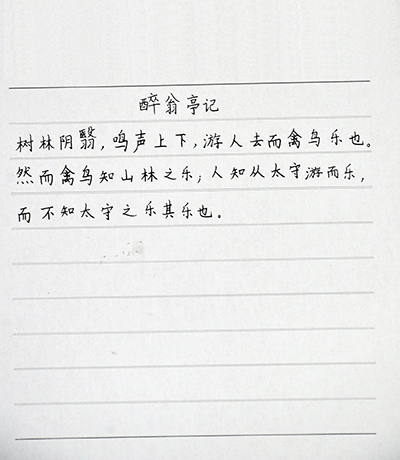 醉翁亭记
树林阴翳，鸣声上下，游人去而禽鸟乐也。
然而禽鸟知山林之乐；人知从太守游而乐，
而不知太守之乐其乐也．